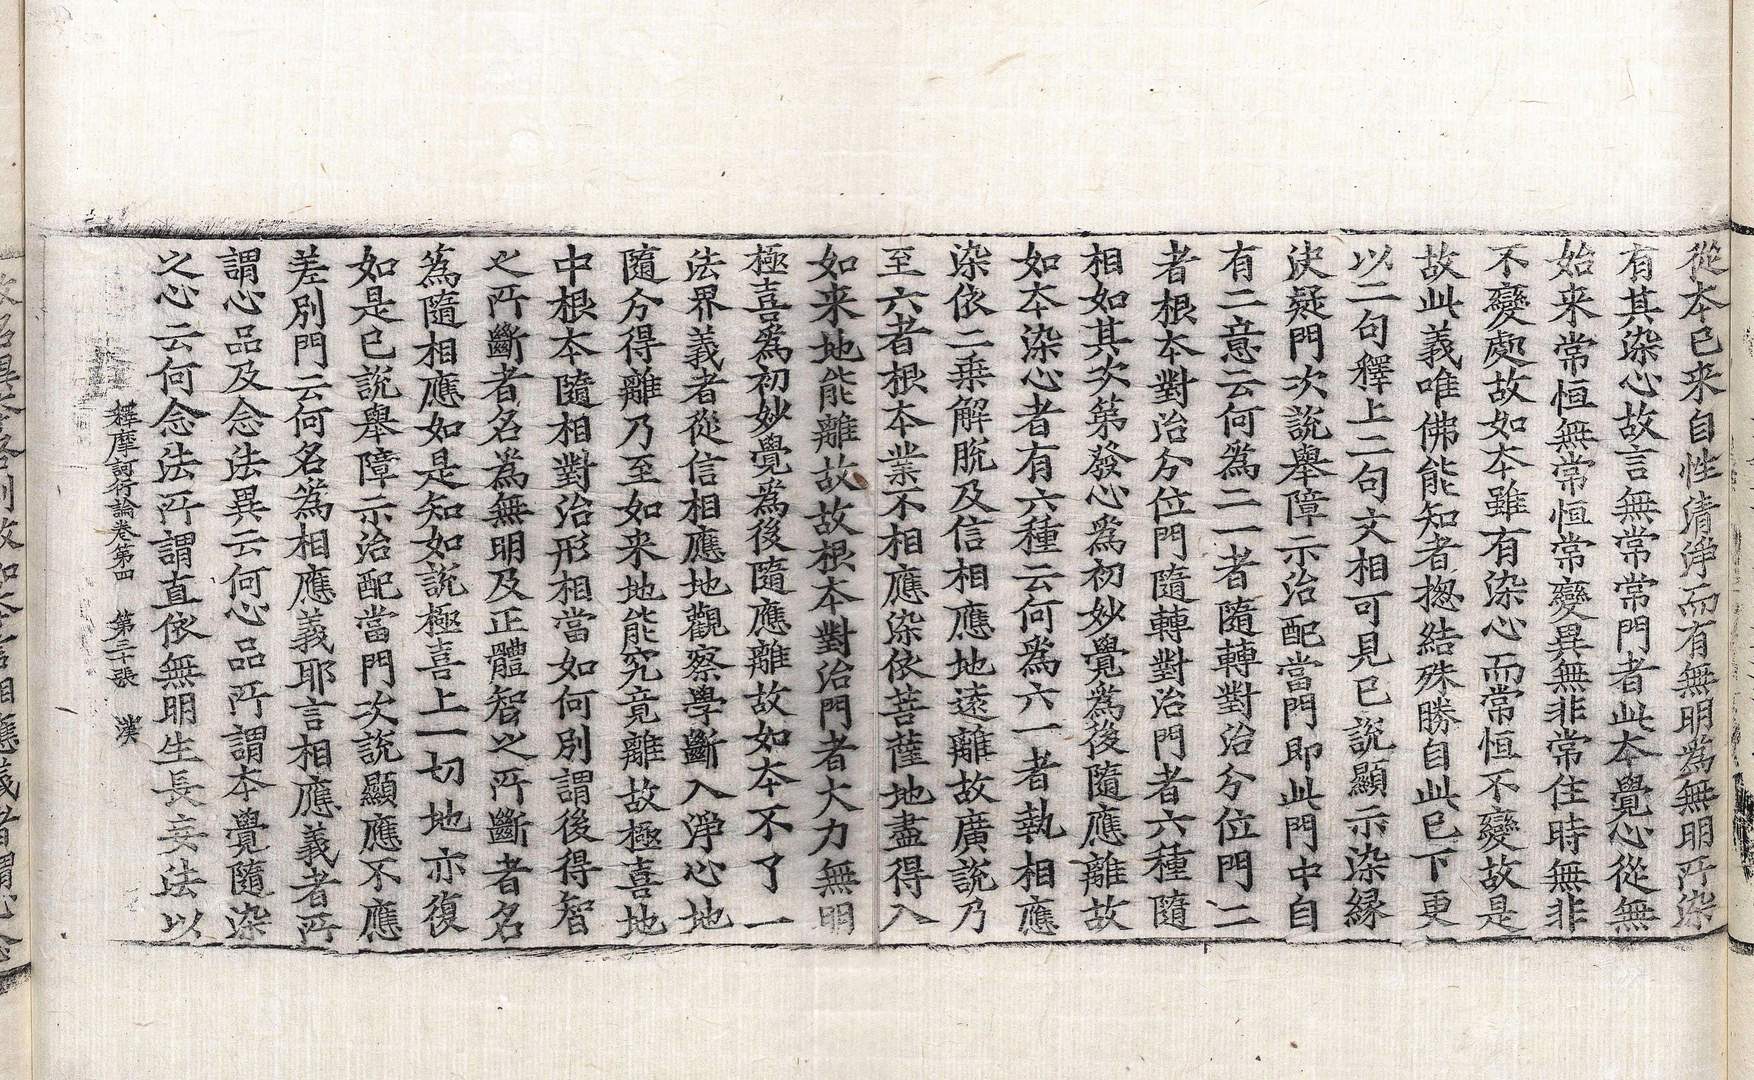 從本已来自性清淨而有無明爲無明所染
有其染心故言無常常門者此本覺心從無
始来常恒無常恒常變異無非常住時無非
不變處故如本雖有染心而常恒不變故是
故此義唯佛能知者揔結殊勝自此已下更
以二句釋上二句文相可見已說顯示染縁
決疑門次說舉障示治配當門即此門中自
有二意云何爲二一者隨轉對治分位門二
者根本對治分位門隨轉對治門者六種隨
相如其次第發心爲初妙覺爲後隨應離故
如本染心者有六種云何爲六一者執相應
染依二乗解脫及信相應地遠離故廣說乃
至六者根本業不相應染依菩薩地盡得入
如来地能離故故根本對治門者大力無明
極喜爲初妙覺爲後隨應離故如本不了一
法界義者從信相應地觀察學斷入淨心地
隨分得離乃至如来地能究竟離故極喜地
中根本隨相對治形相當如何別謂後得智
之所斷者名爲無明及正體智之所斷者名
爲隨相應如是知如說極喜上一切地亦復
如是已說舉障示治配當門次說顯應不應
差別門云何名爲相應義耶言相應義者所
謂心品及念法異云何心品所謂本覺隨染
之心云何念法所謂直依無明生長妄法以
釋摩訶衍論卷第四 第二十張 漢